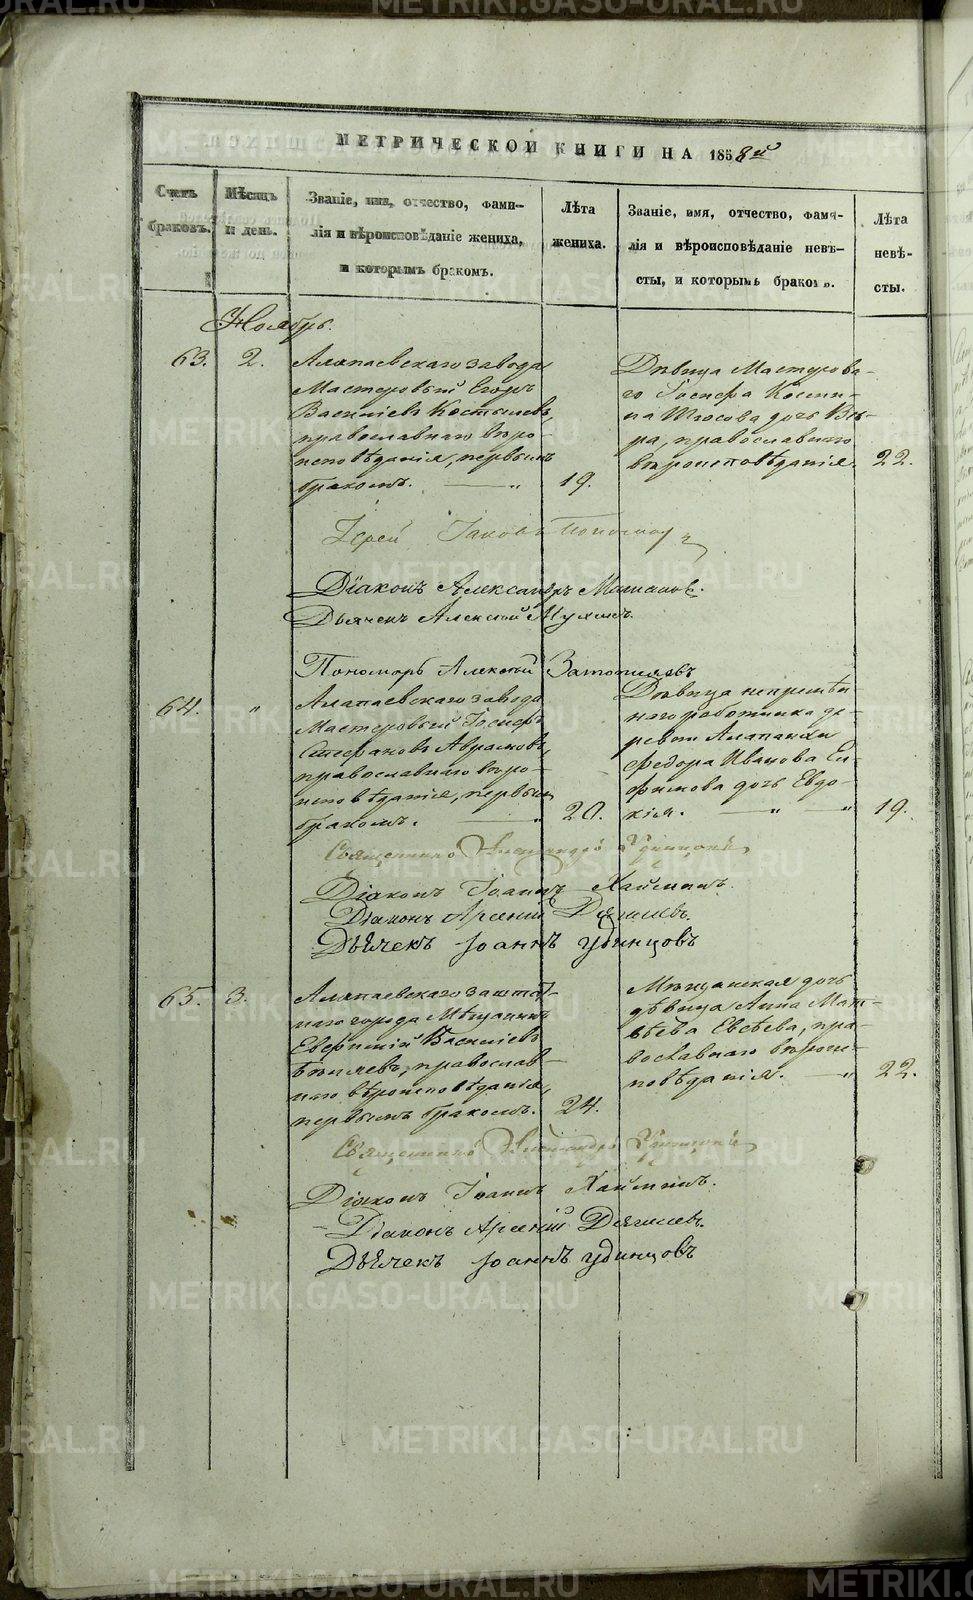 МЕТРИЧЕСКОЙ КНИГИ НА 1858й
Счетъ браковъ.
Мѣсяцъ и день.
Званіе, имя, отчество, фами-
лія и вѣроисповѣданіе жениха,
и которымъ бракомъ.
Лѣта жениха.
Званіе, имя, отчество, фами-
лія и вѣроисповѣданіе невѣ-
сты, и которымъ бракомъ.
Лѣта невѣ-
сты.
Ноябрь.
63. 2.
Алапаевскаго завода
Мастеровый Егоръ
Василіевъ Костылевъ,
православнаго вѣро-
исповѣданія, первымъ
бракомъ. 19.
Дѣвица Мастерова-
го Іосифа Косми-
на дочь Вѣ-
ра, православнаго
вѣроисповѣданія. 22.
Іерей Іаковъ
Діаконъ Александръ
Дьячекъ Алексей
Пономарь Алексей
64. "
Алапаевскаго завода
Мастеровый Іосифъ
Стефановъ Абрамовъ,
православнаго вѣро-
исповѣданія, первымъ
бракомъ. " 20.
Дѣвица непремѣн
наго работника де-
ревни Алапаихи
Федора Иванова Ен-
фимова дочь Евдо-
кія. " " 19.
Священникъ Александръ Удинцовъ
Діаконъ Іоаннъ Хайминъ.
Діаконъ Арсеній Дягилевъ.
Дьячекъ Іоаннъ Удинцовъ
65. 3.
Алапаевскаго заштат-
наго города Мѣщанинъ
Василіевъ
православ-
наго вѣроисповѣданія,
первымъ бракомъ. 24.
Мѣщанская дочь
дѣвица Анна Мат-
вѣева Евсѣева, пра-
вославнаго вѣроис-
повѣданія. " 22.
Священникъ Александръ Удинцовъ
Діаконъ Іоаннъ Хайминъ.
Діаконъ Арсеній Дягилевъ.
Дьячекъ Іоаннъ Удинцовъ
METRIKI.GASO-URAL.RU